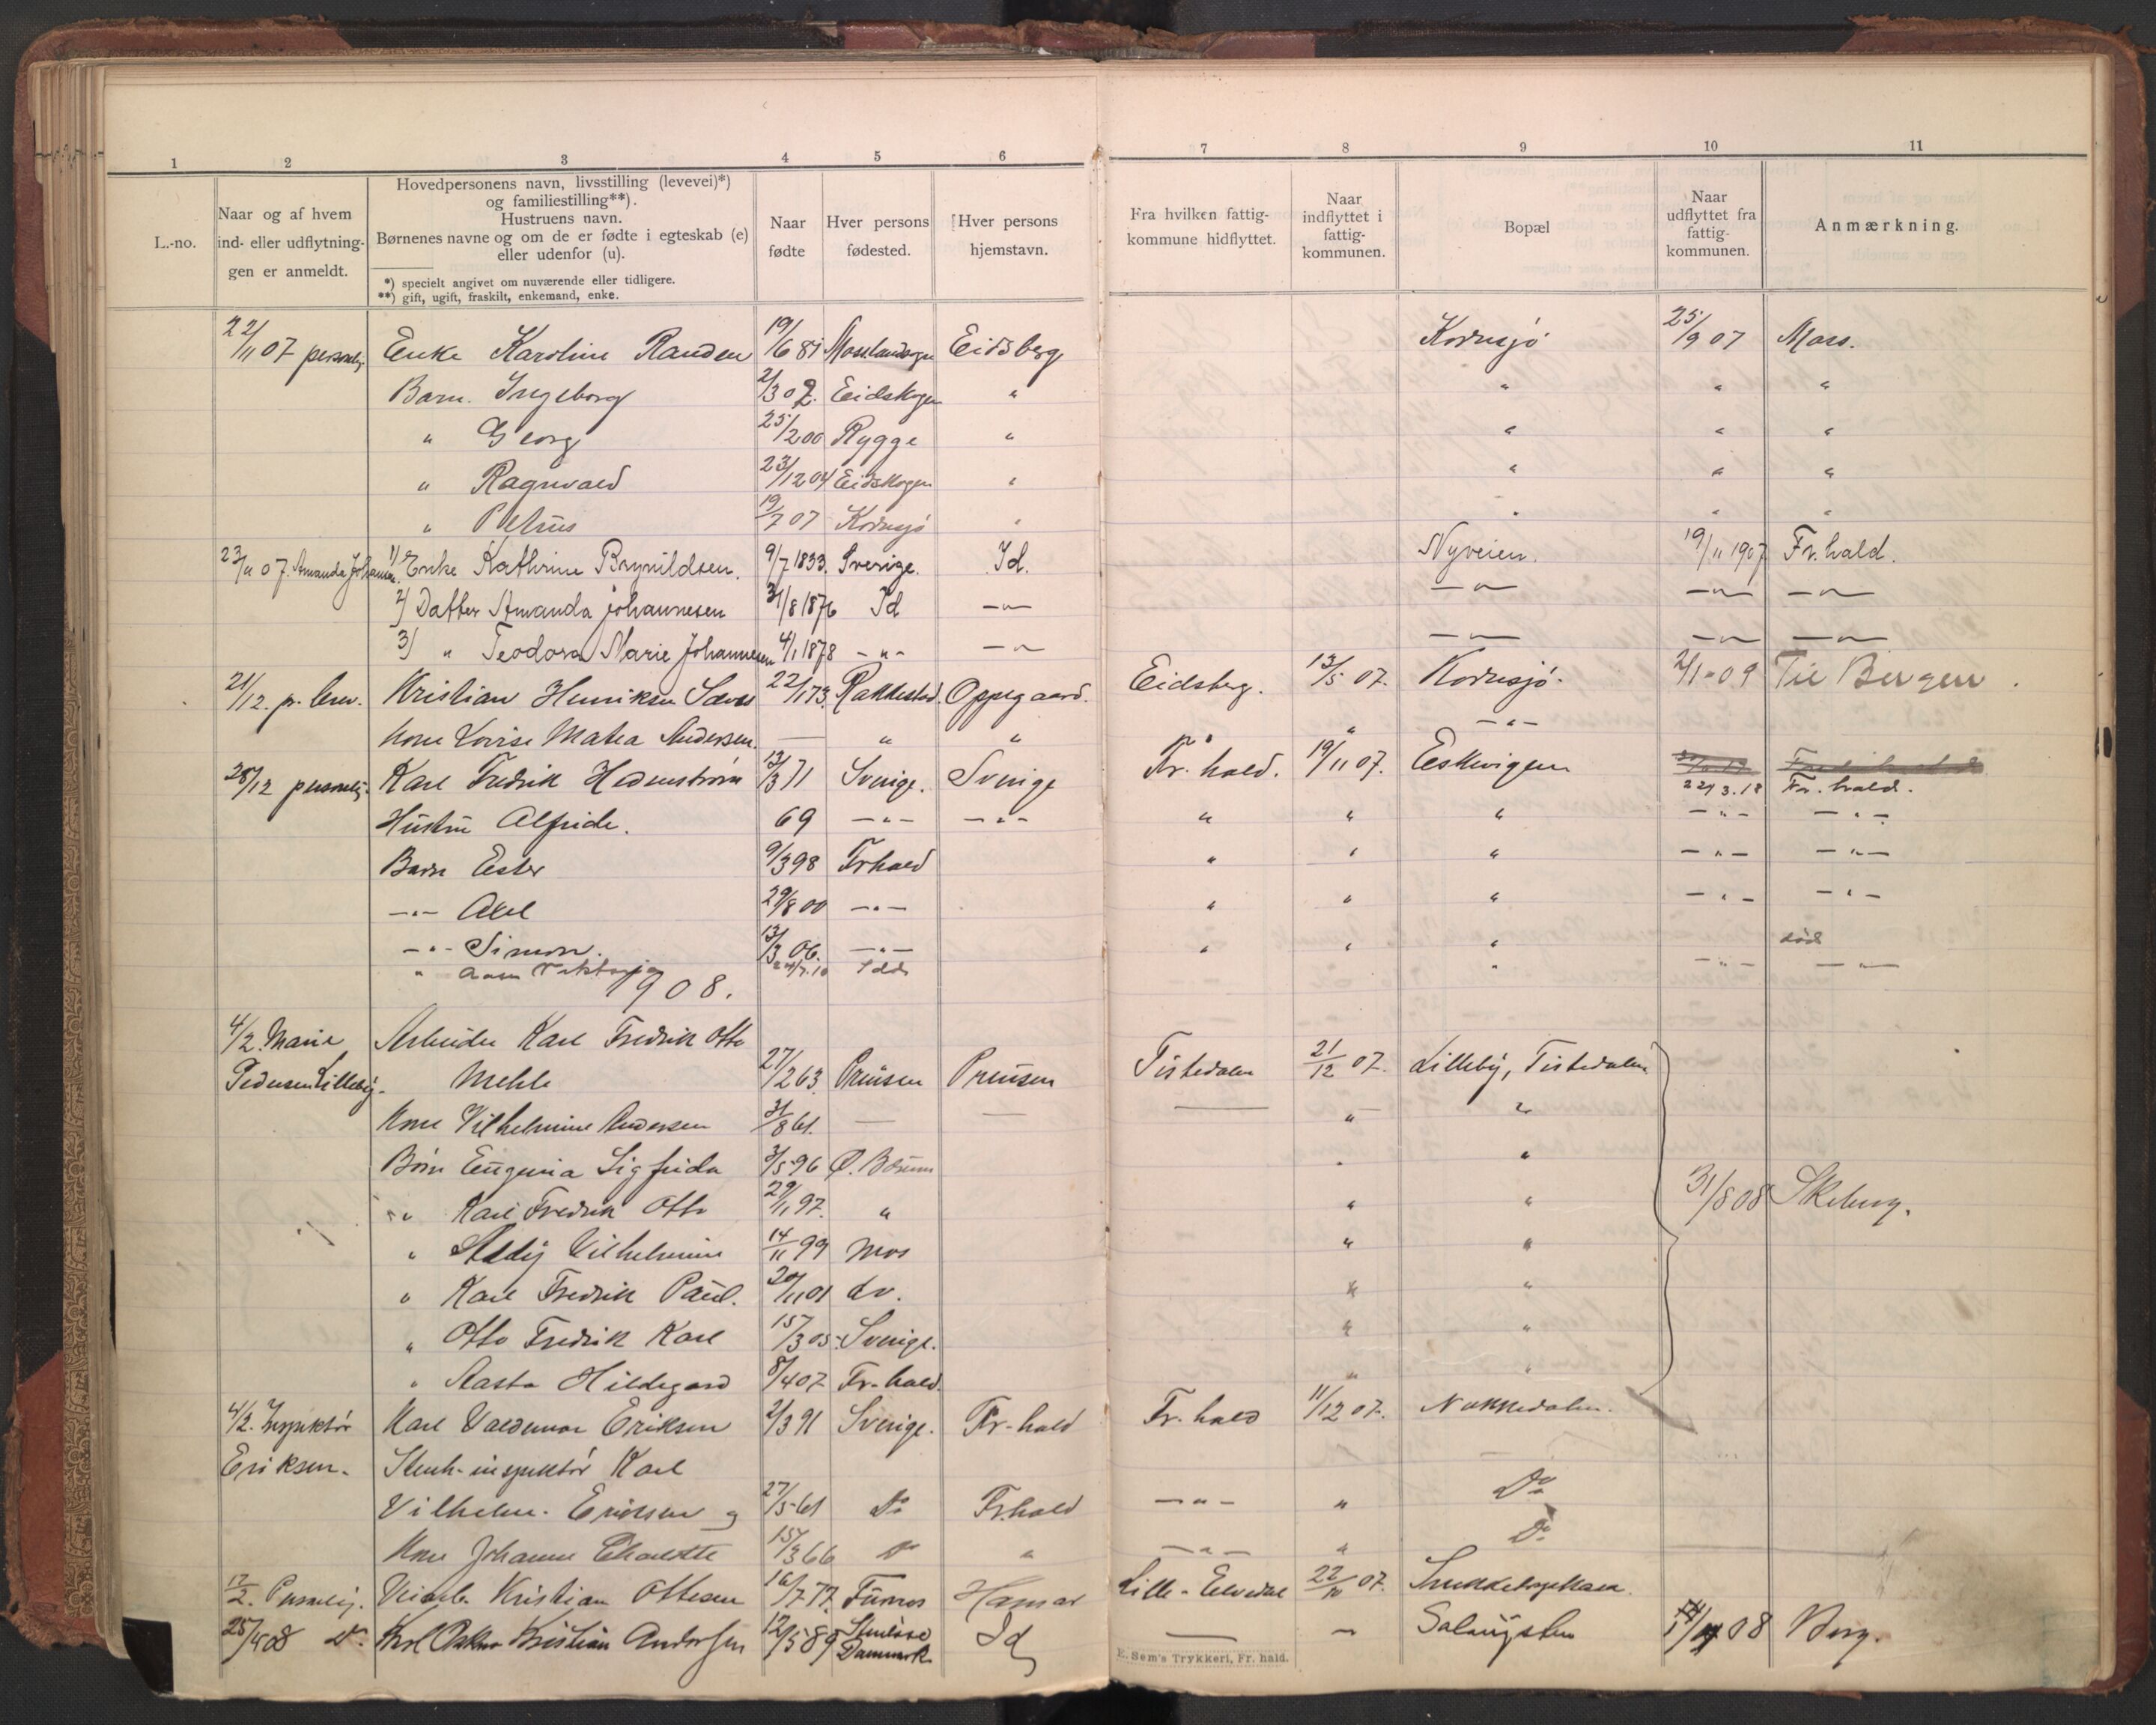 1 2 3 4 5 6 7 8 9 10 11
L.-no.
Naar og af hvem
ind- eller udflytnin-
gen er anmeldt.
Hovedpersonens navn, livsstilling (levevei)*)
og familiestilling**).
Hustruens navn.
Børnenes navne og om de er fødte i egteskab (e)
eller udenfor (u).
*) specielt angivet om nuværende eller tidligere.
**) gift, ugift, fraskilt, enkemand, enke.
Naar
fødte
Hver persons
fødested.
Hver persons
hjemstavn.
Fra hvilken fattig-
kommune hidflyttet.
Naar
indflyttet i
fattig-
kommunen.
Bopæl
Naar
udflyttet fra
fattig-
kommunen.
Anmærkning.
22/11 07 personlig. Enke Karoline Randen 19/6 81 Eidsberg Kornsjö 25/9 07 Moss.
Barn. Ingeborg 2/3 02. Eidskogen " " " "
" Georg 25/2 00 Rygge " " " "
" Ragnvald 23/12 04 Eidskogen " " " "
" Petrus 19/7 07 Kornsjö " " " "
23/11 07. Amanda Johannesen. 1) Enke Kathrine Brynildsen. 9/7 1833. Sverige. Id. Nyveien. 19/11 1907 Fr.hald.
2) Datter Amanda Johannesen 31/8 1876 Id —"— —"— —"— —"—
3) " Teodora Marie Johannesen 4/1 1878 -"- —"— —"— —"— —"—
21/12. pr. brev. Kristian Henriksen 22/1 73. Rakkestad. Oppegaard. Eidsberg. 13/5 07. Kornsjö. 2/1-09 Til Bergen.
Kone Lovise Matea Andersen. — " " " " -"-
28/12 personlig. Karl Fredrik Hedenström 13/3 71 Sverige. Sverige Fr.hald. 19/11 07. Eskevigen 22/3.18 Fr.hald.
Hustru Alfride. 69 -"- -"- " " " -"- -"-
Barn Ester 9/3 98 Frhald " " " -"- -"-
-"- Axel 29/8 00 -"- " " " -"- -"-
-"- Simon. 13/3 06. -"- " " " død
" Viktoria Idd " -"- -"-
1908.
4/2. Marie Arbeider Karl Fredrik Otto
Pedersen Lilleby. Mehle 27/2 63. Preüsen Preüsen Tistedalen 21/12 07. Lilleby, Tistedalen
Kone Vilhelmine Andersen 31/8 61. — — — " "
Börn Eügenia Sigfrida 3/5 96 " "
" Karl Fredrik Otto 29/11 97. " " " 31/8 08 Skeberg.
" Vilhelmine 14/11 99 Mos " "
" Karl Fredrik Paül. 20/11 01 do. " "
" Otto Fredrik Karl 15/3 05. Sverige. " "
" Aasta Hildegard 8/4 07 Fr-hald. " "
4/2. Inspektör Karl Valdemar Eriksen 2/3 91 Sverige. Fr-hald Fr.hald 11/12 07. Nakkedalen.
Eriksen. inspektör Karl
Vilhelm Eriksen og 27/5 61 Do Fr.hald -"- " Do
Kone Johanne Charlotte 15/3 66 Do " -"- " Do
17/2. Personlig. Kristian Ottesen 16/7 77. Fürnes Hamar Lille-Elvedal 22/10 07.
25/4 08 Do. Karl Oskar Kristian Andersen 12/5 89 Danmark Id — — 08 Berg.
E. Sem's Trykkeri, Fr. hald.